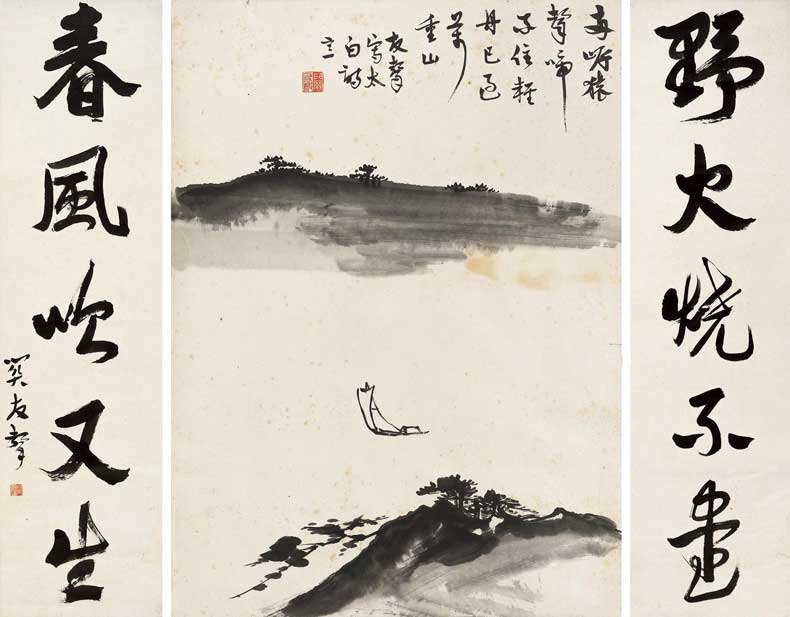 野火燒不盡
兩岸猿
聲啼
不住輕
舟已過
萬
重山
友聲
寫太
白詩
意
春風吹又生
関友聲